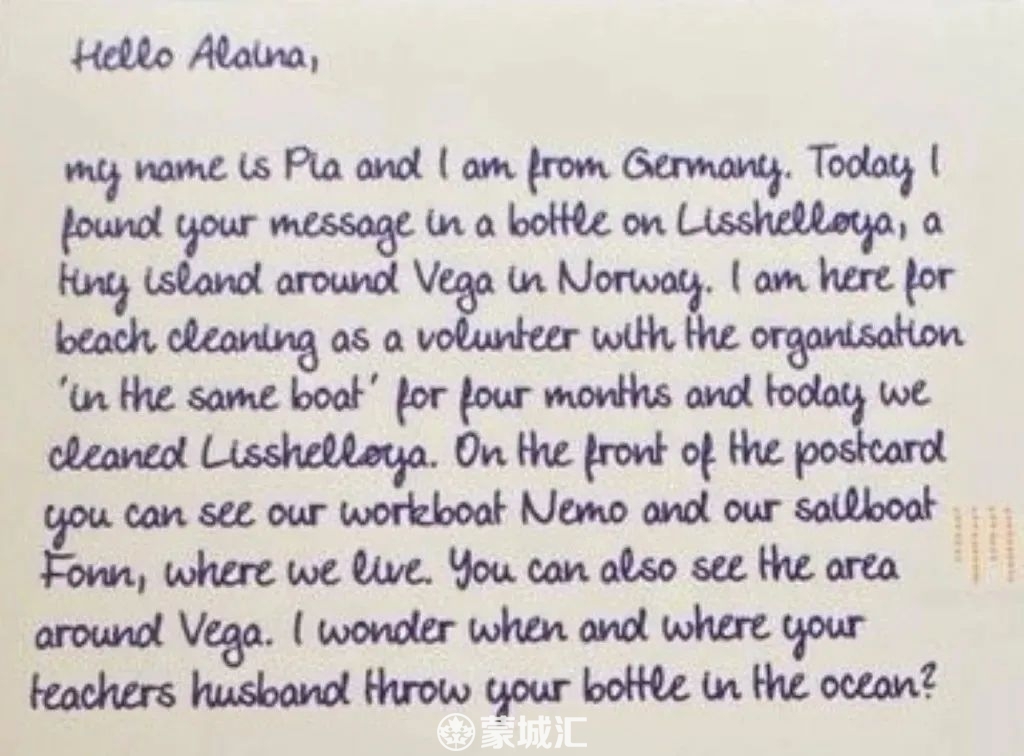 Hello Alaina,
my name is Pia and I am from Germany. Today I
found your message in a bottle on Lisshelløya, a
tiny island around Vega in Norway. I am here for
beach cleaning as a volunteer with the organisation
'in the same boat' for four months and today we
cleaned Lisshelløya. On the front of the postcard
you can see our workboat Nemo and our sailboat
Fonn, where we live. You can also see the area
around Vega. I wonder when and where your
teachers husband throw your bottle in the ocean?
蒙城汇